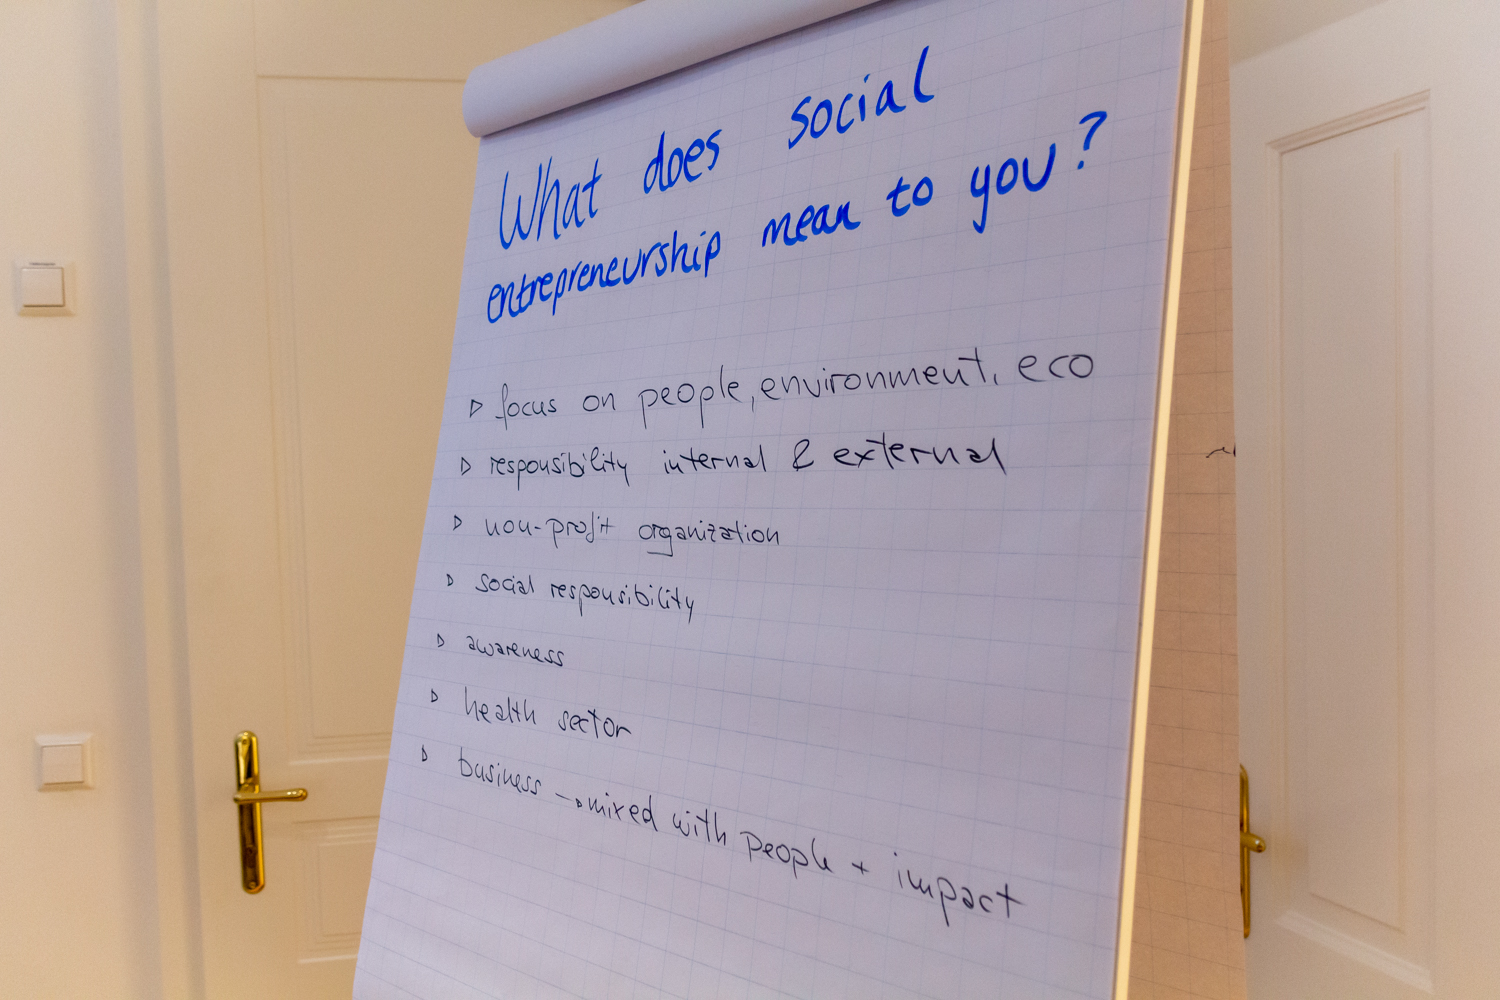 What does social
entrepreneurship mean to you?
▷ focus on people, environment, eco
▷ responsibility internal & external
▷ non-profit organization
▷ social responsibility
▷ awareness
▷ health sector
▷ business → mixed with people + impact